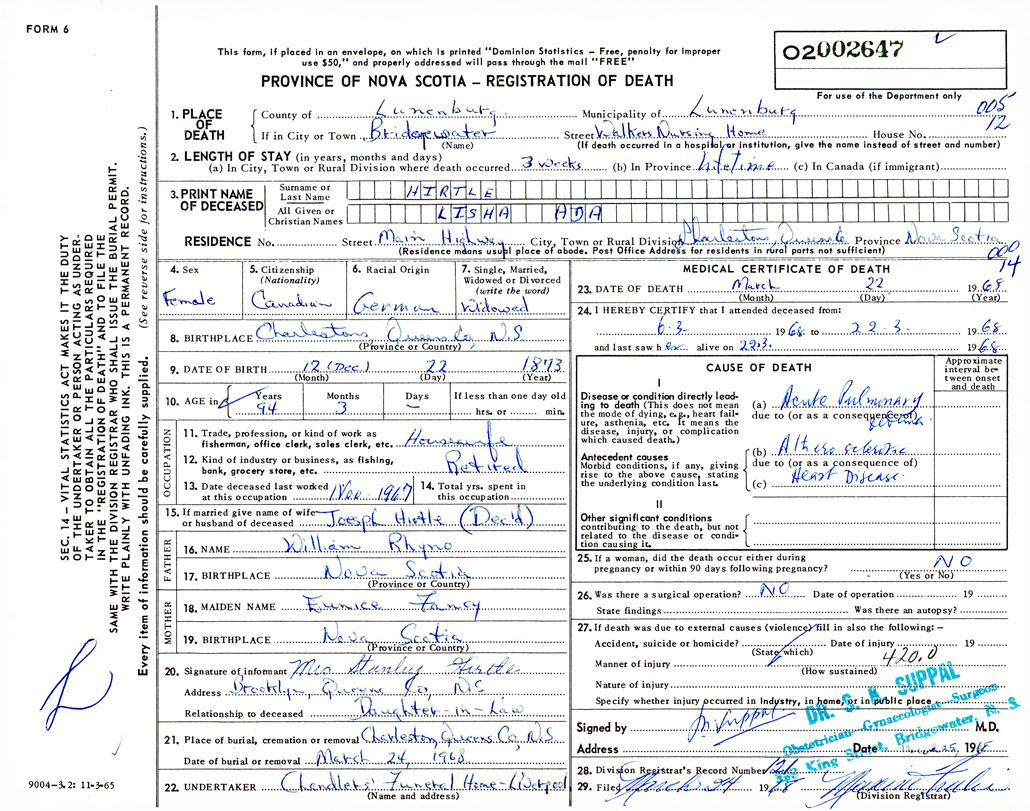 FORM 6
This form, if placed in an envelope, on which is printed "Dominion Statistics – Free, penalty for improper
use $50," and properly addressed will pass through the mail "FREE"
PROVINCE OF NOVA SCOTIA – REGISTRATION OF DEATH
02002647
For use of the Department only
005
12
1. PLACE OF DEATH
County of Lunenburg Municipality of Lunenburg
If in City or Town Bridgewater Street Walkers Nursing Home House No.
(Name) (If death occurred in a hospital or institution, give the name instead of street and number)
2. LENGTH OF STAY (in years, months and days)
(a) In City, Town or Rural Division where death occurred 3 weeks (b) In Province lifetime (c) In Canada (if immigrant)
3. PRINT NAME OF DECEASED
Surname or Last Name HIRTLE
All Given or Christian Names LISHA ADA
RESIDENCE No. Street Main Highway City, Town or Rural Division Charleston, Queens Co Province Nova Scotia
(Residence means usual place of abode. Post Office Address for residents in rural parts not sufficient)
009
14
4. Sex
Female
5. Citizenship
(Nationality)
Canadian
6. Racial Origin
German
7. Single, Married,
Widowed or Divorced
(write the word)
Widowed
8. BIRTHPLACE Charleston, Queens Co, N.S
(Province or Country)
9. DATE OF BIRTH 12 (Dec.) 22 1873
(Month) (Day) (Year)
10. AGE in
Years 94
Months 3
Days –
If less than one day old
hrs. or min.
OCCUPATION
11. Trade, profession, or kind of work as
fisherman, office clerk, sales clerk, etc. Housewife
12. Kind of industry or business, as fishing,
bank, grocery store, etc. Retired
13. Date deceased last worked
at this occupation Nov. 1967
14. Total yrs. spent in
this occupation
15. If married give name of wife
or husband of deceased Joesph Hirtle (Dec'd)
FATHER
16. NAME William Rhyno
17. BIRTHPLACE Nova Scotia
(Province or Country)
MOTHER
18. MAIDEN NAME Eunice Fancy
19. BIRTHPLACE Nova Scotia
(Province or Country)
20. Signature of informant Mrs Stanley Hirtle
Address Brooklyn, Queens Co, N.S
Relationship to deceased Daughter-in-Law
21. Place of burial, cremation or removal Charleston, Queens Co, N.S.
Date of burial or removal March 24, 1968
22. UNDERTAKER Chandlers' Funeral Home - Liverpool
(Name and address)
MEDICAL CERTIFICATE OF DEATH
23. DATE OF DEATH March 22 1968
(Month) (Day) (Year)
24. I HEREBY CERTIFY that I attended deceased from:
6.3. 1968 to 22.3. 1968
and last saw her alive on 22.3. 1968
CAUSE OF DEATH
Approximate
interval be-
tween onset
and death
I
Disease or condition directly lead-
ing to death (This does not
mean the mode of dying, e.g., heart fail-
ure, asthenia, etc. It means the
disease, injury, or complication
which caused death.)
(a) Acute Pulmonary
due to (or as a consequence of)
Antecedent causes
Morbid conditions, if any, giving
rise to the above cause, stating
the underlying condition last.
(b)
due to (or as a consequence of)
(c) Heart Disease
II
Other significant conditions
contributing to the death, but not
related to the disease or condi-
tion causing it.
25. If a woman, did the death occur either during
pregnancy or within 90 days following pregnancy? NO
(Yes or No)
26. Was there a surgical operation? NO Date of operation 19
State findings Was there an autopsy?
27. If death was due to external causes (violence) fill in also the following: –
Accident, suicide or homicide? Date of injury 19
(State which)
Manner of injury 420.0
(How sustained)
Nature of injury
Specify whether injury occurred in Industry, in home, or in public place
Signed by M.D.
Address Date March 25, 1968
DR. S. K SUPPAL
Obstetrician - Gynaecologist - Surgeon
King Street, Bridgewater, N. S
28. Division Registrar's Record Number
29. Filed March 24 1968
(Division Registrar)
SEC. 14 – VITAL STATISTICS ACT MAKES IT THE DUTY
OF THE UNDERTAKER OR PERSON ACTING AS UNDER-
TAKER TO OBTAIN ALL THE PARTICULARS REQUIRED
IN THE "REGISTRATION OF DEATH" AND TO FILE THE
SAME WITH THE DIVISION REGISTRAR WHO SHALL ISSUE THE BURIAL PERMIT.
WRITE PLAINLY WITH UNFADING INK. THIS IS A PERMANENT RECORD.
Every item of information should be carefully supplied. (See reverse side for instructions.)
9004-3.2: 11-3-65